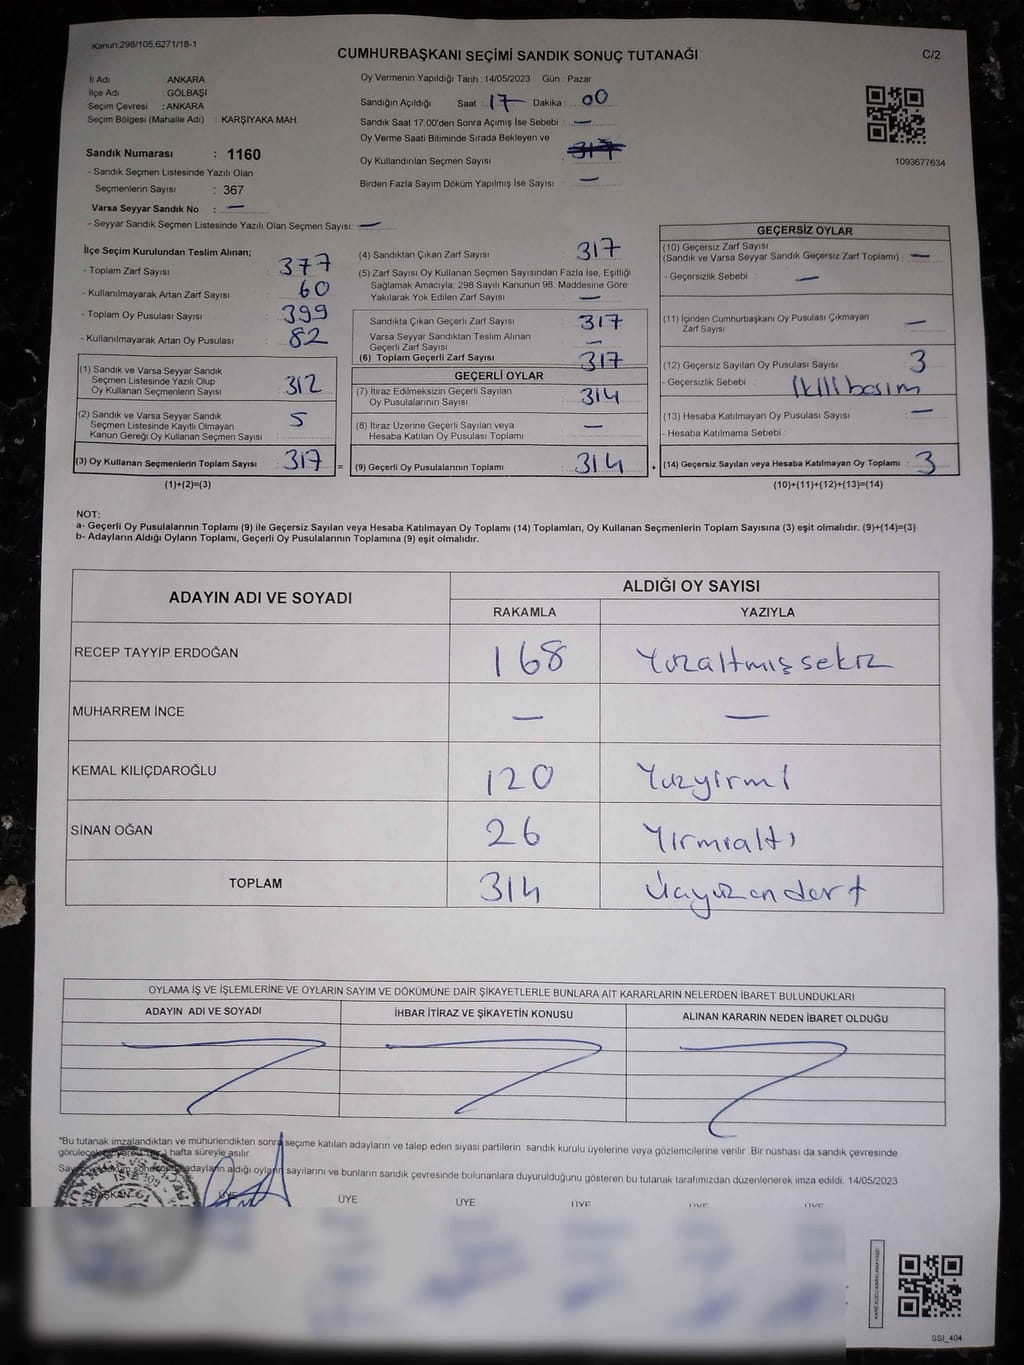 Kanun:298/105,6271/18-1
CUMHURBAŞKANI SEÇİMİ SANDIK SONUÇ TUTANAĞI
C/2
İl Adı : ANKARA
İlçe Adı : GÖLBAŞI
Seçim Çevresi : ANKARA
Seçim Bölgesi (Mahalle Adı) : KARŞIYAKA MAH.
Sandık Numarası : 1160
- Sandık Seçmen Listesinde Yazılı Olan
Seçmenlerin Sayısı : 367
Varsa Seyyar Sandık No : —
- Seyyar Sandık Seçmen Listesinde Yazılı Olan Seçmen Sayısı: —
Oy Vermenin Yapıldığı Tarih : 14/05/2023 Gün : Pazar
Sandığın Açıldığı Saat : 17 Dakika : 00
Sandık Saat 17:00'den Sonra Açımış İse Sebebi : —
Oy Verme Saati Bitiminde Sırada Bekleyen ve
Oy Kullandırılan Seçmen Sayısı : 317
Birden Fazla Sayım Döküm Yapılmış İse Sayısı : —
1093677634
İlçe Seçim Kurulundan Teslim Alınan;
- Toplam Zarf Sayısı : 377
- Kullanılmayarak Artan Zarf Sayısı : 60
- Toplam Oy Pusulası Sayısı : 399
- Kullanılmayarak Artan Oy Pusulası : 82
(1) Sandık ve Varsa Seyyar Sandık
Seçmen Listesinde Yazılı Olup
Oy Kullanan Seçmenlerin Sayısı : 312
(2) Sandık ve Varsa Seyyar Sandık
Seçmen Listesinde Kayıtlı Olmayan
Kanun Gereği Oy Kullanan Seçmen Sayısı : 5
(3) Oy Kullanan Seçmenlerin Toplam Sayısı : 317 =
(1)+(2)=(3)
(4) Sandıktan Çıkan Zarf Sayısı : 317
(5) Zarf Sayısı Oy Kullanan Seçmen Sayısından Fazla İse, Eşitliği
Sağlamak Amacıyla, 298 Sayılı Kanunun 98. Maddesine Göre
Yakılarak Yok Edilen Zarf Sayısı : —
Sandıkta Çıkan Geçerli Zarf Sayısı : 317
Varsa Seyyar Sandıktan Teslim Alınan
Geçerli Zarf Sayısı : —
(6) Toplam Geçerli Zarf Sayısı : 317
GEÇERLİ OYLAR
(7) İtiraz Edilmeksizin Geçerli Sayılan
Oy Pusulalarının Sayısı : 314
(8) İtiraz Üzerine Geçerli Sayılan veya
Hesaba Katılan Oy Pusulası Toplamı : —
(9) Geçerli Oy Pusulalarının Toplamı : 314 +
GEÇERSİZ OYLAR
(10) Geçersiz Zarf Sayısı
(Sandık ve Varsa Seyyar Sandık Geçersiz Zarf Toplamı) : —
- Geçersizlik Sebebi : —
(11) İçinden Cumhurbaşkanı Oy Pusulası Çıkmayan
Zarf Sayısı : —
(12) Geçersiz Sayılan Oy Pusulası Sayısı : 3
- Geçersizlik Sebebi : İkili basım
(13) Hesaba Katılmayan Oy Pusulası Sayısı : —
- Hesaba Katılmama Sebebi :
(14) Geçersiz Sayılan veya Hesaba Katılmayan Oy Toplamı : 3
(10)+(11)+(12)+(13)=(14)
NOT:
a- Geçerli Oy Pusulalarının Toplamı (9) ile Geçersiz Sayılan veya Hesaba Katılmayan Oy Toplamı (14) Toplamları, Oy Kullanan Seçmenlerin Toplam Sayısına (3) eşit olmalıdır. (9)+(14)=(3)
b- Adayların Aldığı Oyların Toplamı, Geçerli Oy Pusulalarının Toplamına (9) eşit olmalıdır.
ADAYIN ADI VE SOYADI
ALDIĞI OY SAYISI
RAKAMLA YAZIYLA
RECEP TAYYİP ERDOĞAN 168 Yüzaltmışsekiz
MUHARREM İNCE — —
KEMAL KILIÇDAROĞLU 120 Yüzyirmi
SİNAN OĞAN 26 Yirmialtı
TOPLAM 314 Üçyüzondört
OYLAMA İŞ VE İŞLEMLERİNE VE OYLARIN SAYIM VE DÖKÜMÜNE DAİR ŞİKAYETLERLE BUNLARA AİT KARARLARIN NELERDEN İBARET BULUNDUKLARI
ADAYIN ADI VE SOYADI İHBAR İTİRAZ VE ŞİKAYETİN KONUSU ALINAN KARARIN NEDEN İBARET OLDUĞU
*Bu tutanak imzalandıktan ve mühürlendikten sonra seçime katılan adayların ve talep eden siyasi partilerin sandık kurulu üyelerine veya gözlemcilerine verilir. Bir nüshası da sandık çevresinde
hafta süreyle asılır.
adayların aldığı oyların sayılarını ve bunların sandık çevresinde bulunanlara duyurulduğunu gösteren bu tutanak tarafımızdan düzenlenerek imza edildi. 14/05/2023
BAŞKAN ÜYE ÜYE ÜYE ÜYE ÜYE ÜYE
SSI_404